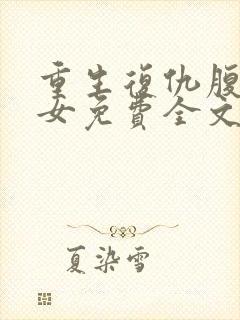 重生復仇腹
女免費全文
夏染雪